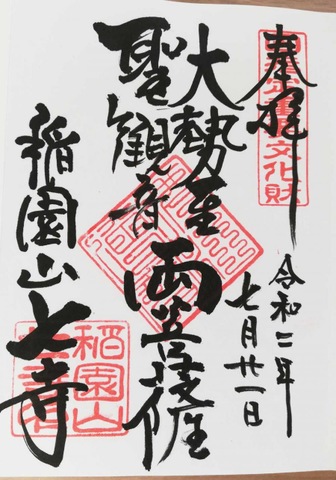 奉拝
重要文化財
令和二年
七月廿一日
大勢至
聖観音
両
稲園山七寺
稲園山